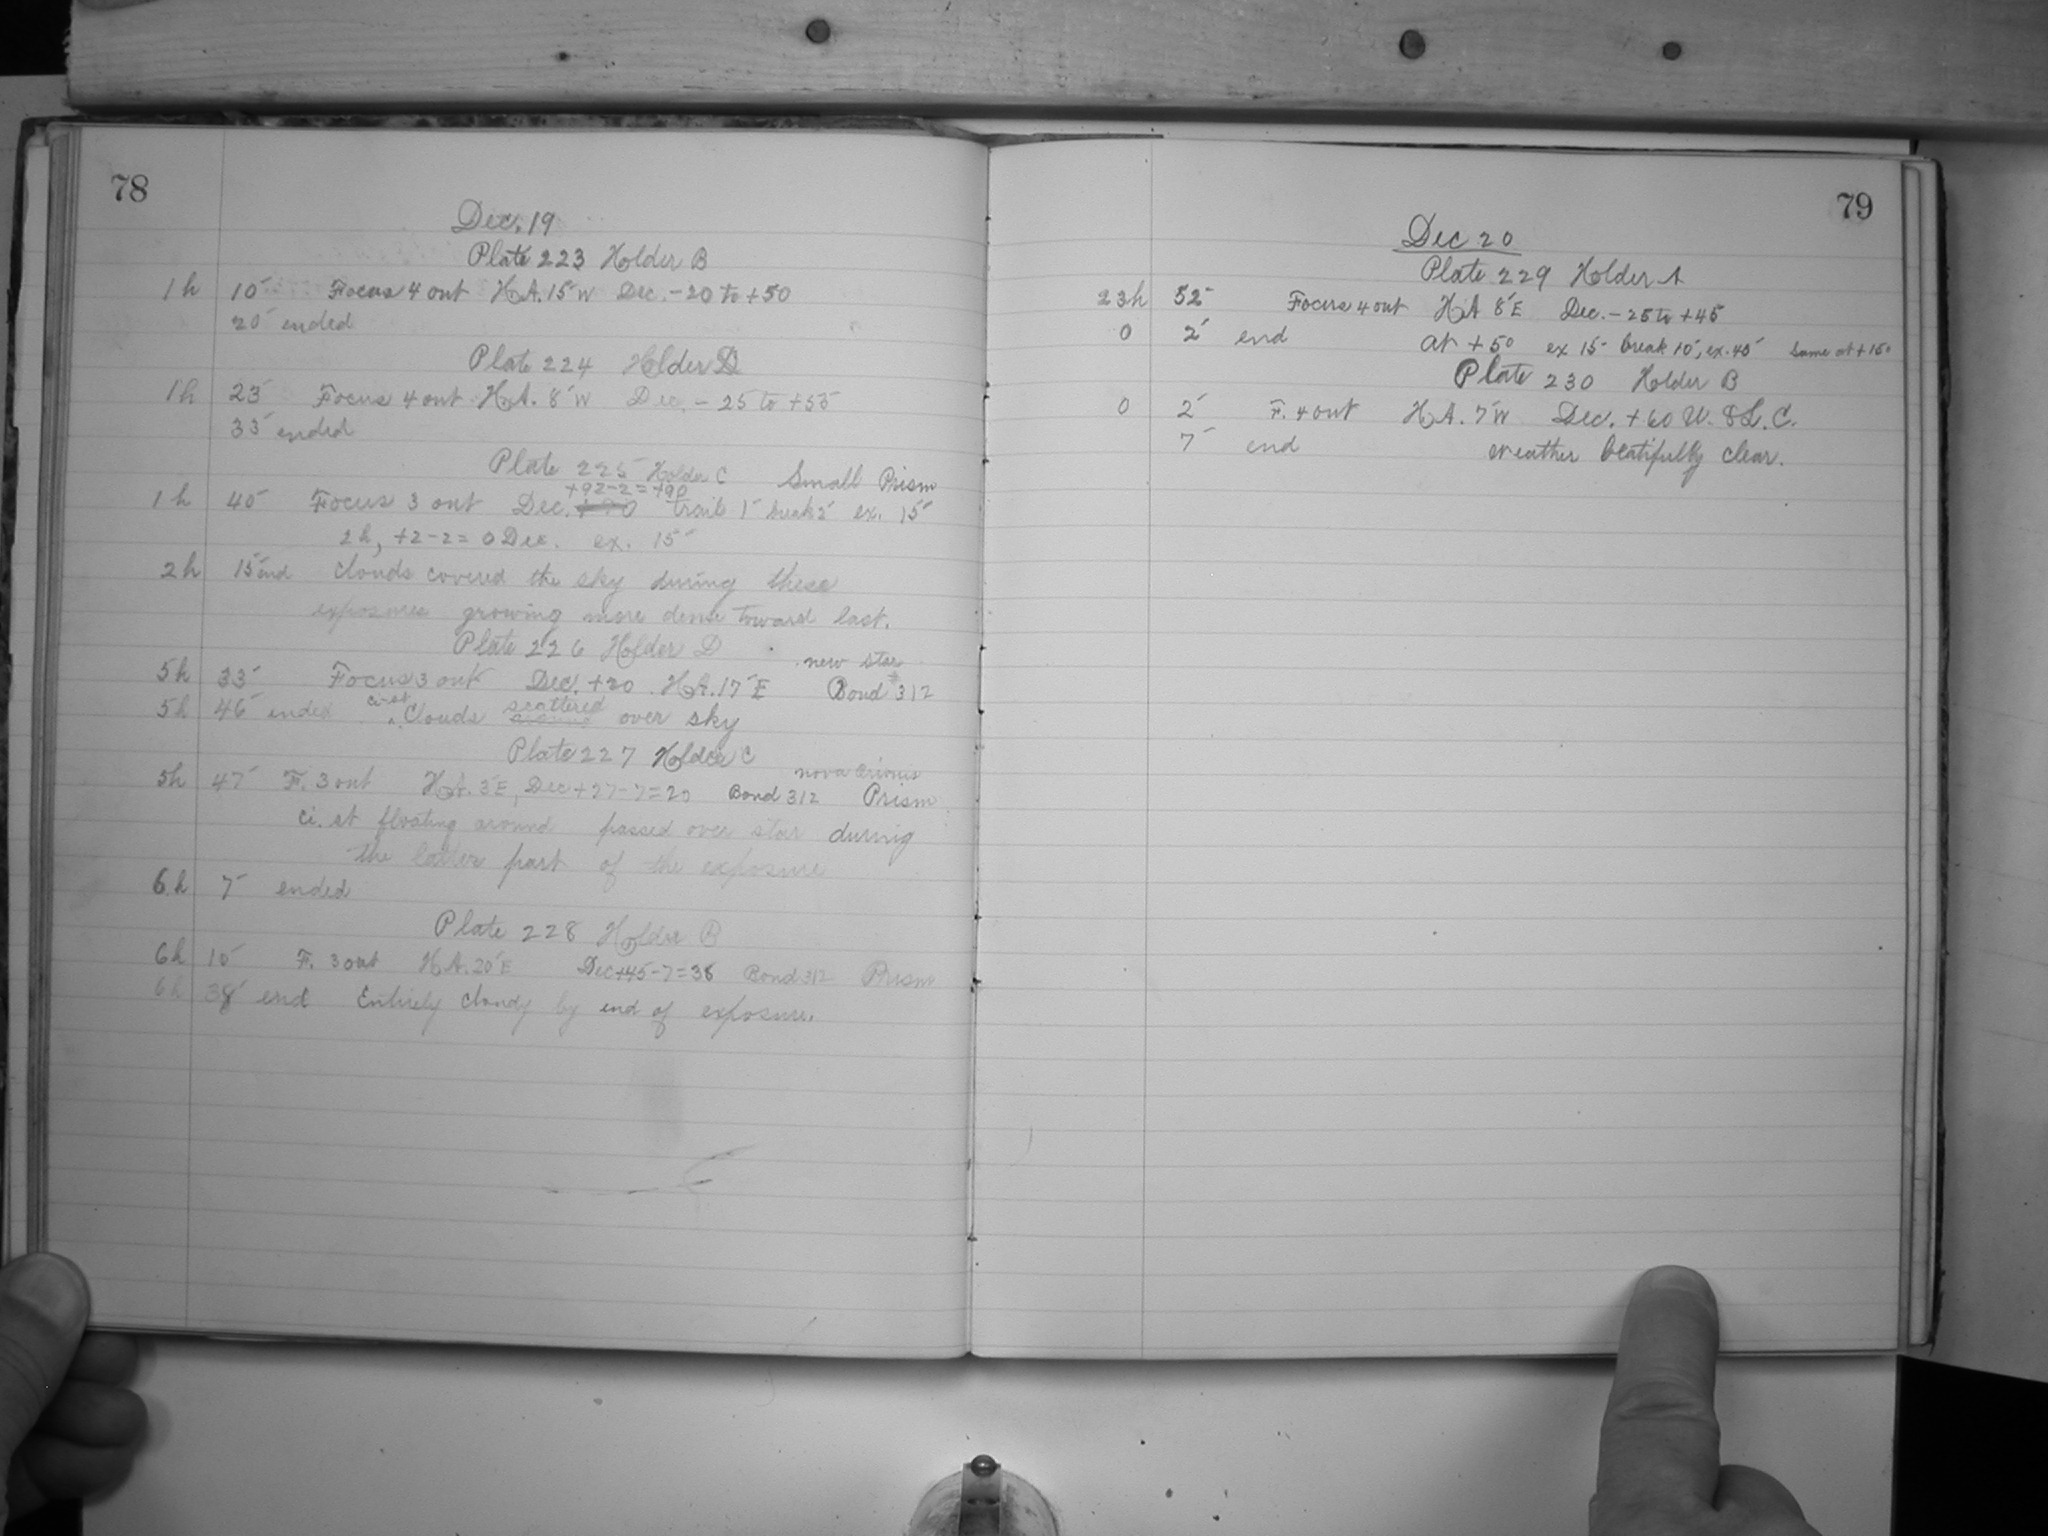 78
Dec. 19
Plate 223 Holder B
1h 10 Focus 4 out H.A. 15 W Dec. -20 to +50
20 ended
Plate 224 Holder D
1h 23 Focus 4 out H.A. 8 W Dec. -25 to +55
33 ended
Plate 225 Holder C Small Prism
+92-2=+90
1h 40 Focus 3 out Dec. +90 trails 1 break 2 ex. 15
2h, +2-2=0 Dec. ex. 15
2h 15 end Clouds covered the sky during these
exposures growing more dense toward last.
Plate 226 Holder D
new star
5h 33 Focus 3 out Dec. +20 H.A. 17 E Bond 312
ci-st scattered
5h 46 ended Clouds over sky
Plate 227 Holder C
nova Orionis
5h 47 F. 3 out H.A. 3 E, Dec +27-7=20 Bond 312 Prism
ci. st floating around passed over star during
the latter part of the exposure
6h 7 ended
Plate 228 Holder B
6h 10 F. 3 out H.A. 20 E Dec +45-7=38 Bond 312 Prism
6h 38 end Entirely cloudy by end of exposure.
79
Dec 20
Plate 229 Holder A
23h 52 Focus 4 out H.A 8 E Dec. -25 to +45
0 2 end at +50 ex 15 break 10, ex. 45 Same at +150
Plate 230 Holder B
0 2 F. 4 out H.A. 7 W Dec. +60 U. & L. C.
7 end weather beatifully clear.